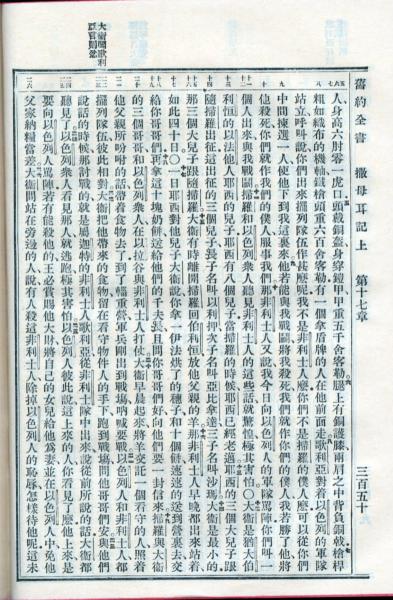 舊約全書 撒母耳記上 第十七章 三百五十
人身高六肘零一虎口頭戴銅盔身穿鎧甲甲重五千舍客勒腿上有銅護膝兩肩之中背負銅戟槍桿
粗如織布的機軸鐵槍頭重六百舍客勒有一個拿盾牌的人在他前面走歌利亞對着以色列的軍隊
站立呼叫說你們出來擺列隊伍作甚麼呢我不是非利士人麼你們不是掃羅的僕人麼可以從你們
中間揀選一人使他下到我這裏來他若能與我戰鬭將我殺死我們就作你們的僕人我若勝了他將
他殺死你們就作我們的僕人服事我們那非利士人又說我今日向以色列人的軍隊罵陣你們叫一
個人出來與我戰鬭掃羅和以色列衆人聽見非利士人的這些話就驚惶極其害怕大衛是猶大伯
利恒的以法他人耶西的兒子耶西有八個兒子當掃羅的時候耶西已經老邁耶西的三個大兒子跟
隨掃羅出征這出征的三個兒子長子名叫以利押次子名叫亞比拿達三子名叫沙瑪大衛是最小的
那三個大兒子跟隨掃羅大衛有時離開掃羅回伯利恒放他父親的羊那非利士人早晚都出來站着
如此四十日一日耶西對他兒子大衛說你拿一伊法烘了的穗子和十個餅速速的送到營裏去交
給你哥哥們再拿這十塊奶餅送給他們的千夫長且問你哥哥們好向他們要一封信來掃羅與大衛
的三個哥哥和以色列衆人在以拉谷與非利士人打仗大衛早晨起來將羊交託一個看守的人照着
他父親所吩咐的話帶着食物去了到了輜重營軍兵剛出到戰塲吶喊要戰以色列人和非利士人都
擺列隊伍彼此相對大衛把他帶來的食物留在看守物件人的手下跑到戰塲問他哥哥們安與他們
說話的時候那討戰的就是屬迦特的非利士人歌利亞從非利士隊中出來說從前所說的話大衛都
聽見了以色列衆人看見那人就逃跑極其害怕以色列人彼此說這上來的人你看見了麼他上來是
要向以色列人罵陣若有能殺他的王必賞賜他大財將自己的女兒給他爲妻並在以色列人中免他
父家納糧當差大衛問站在旁邊的人說有人殺這非利士人除掉以色列人的恥辱怎樣待他呢這未